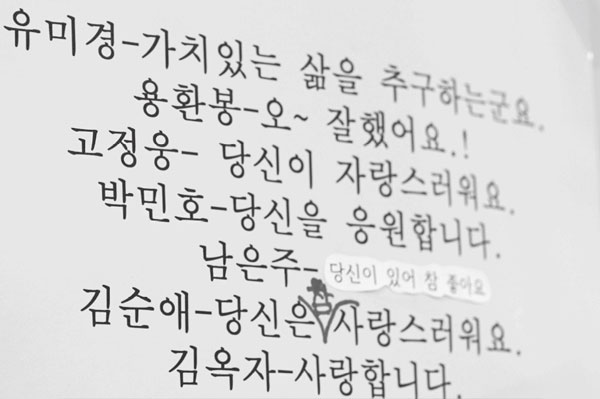 유미경-가치있는 삶을 추구하는군요.
용환봉-오~ 잘했어요.!
고정웅- 당신이 자랑스러워요.
박민호-당신을 응원합니다.
남은주- 당신이 있어 참 좋아요
김순애-당신은 사랑스러워요.
김옥자-사랑합니다.